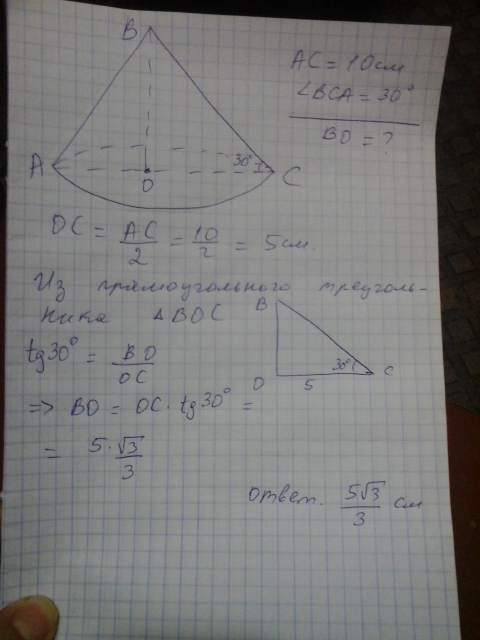 B
AC = 10см
∠BCA = 30°
BO = ?
A
30°
C
O
OC = AC/2 = 10/2 = 5см.
Из прямоугольного треуголь-
ника △BOC
B
tg30° = BO/OC
30°
C
O
5
=> BO = OC · tg30° =
= 5·√3/3
ответ. 5√3/3 см